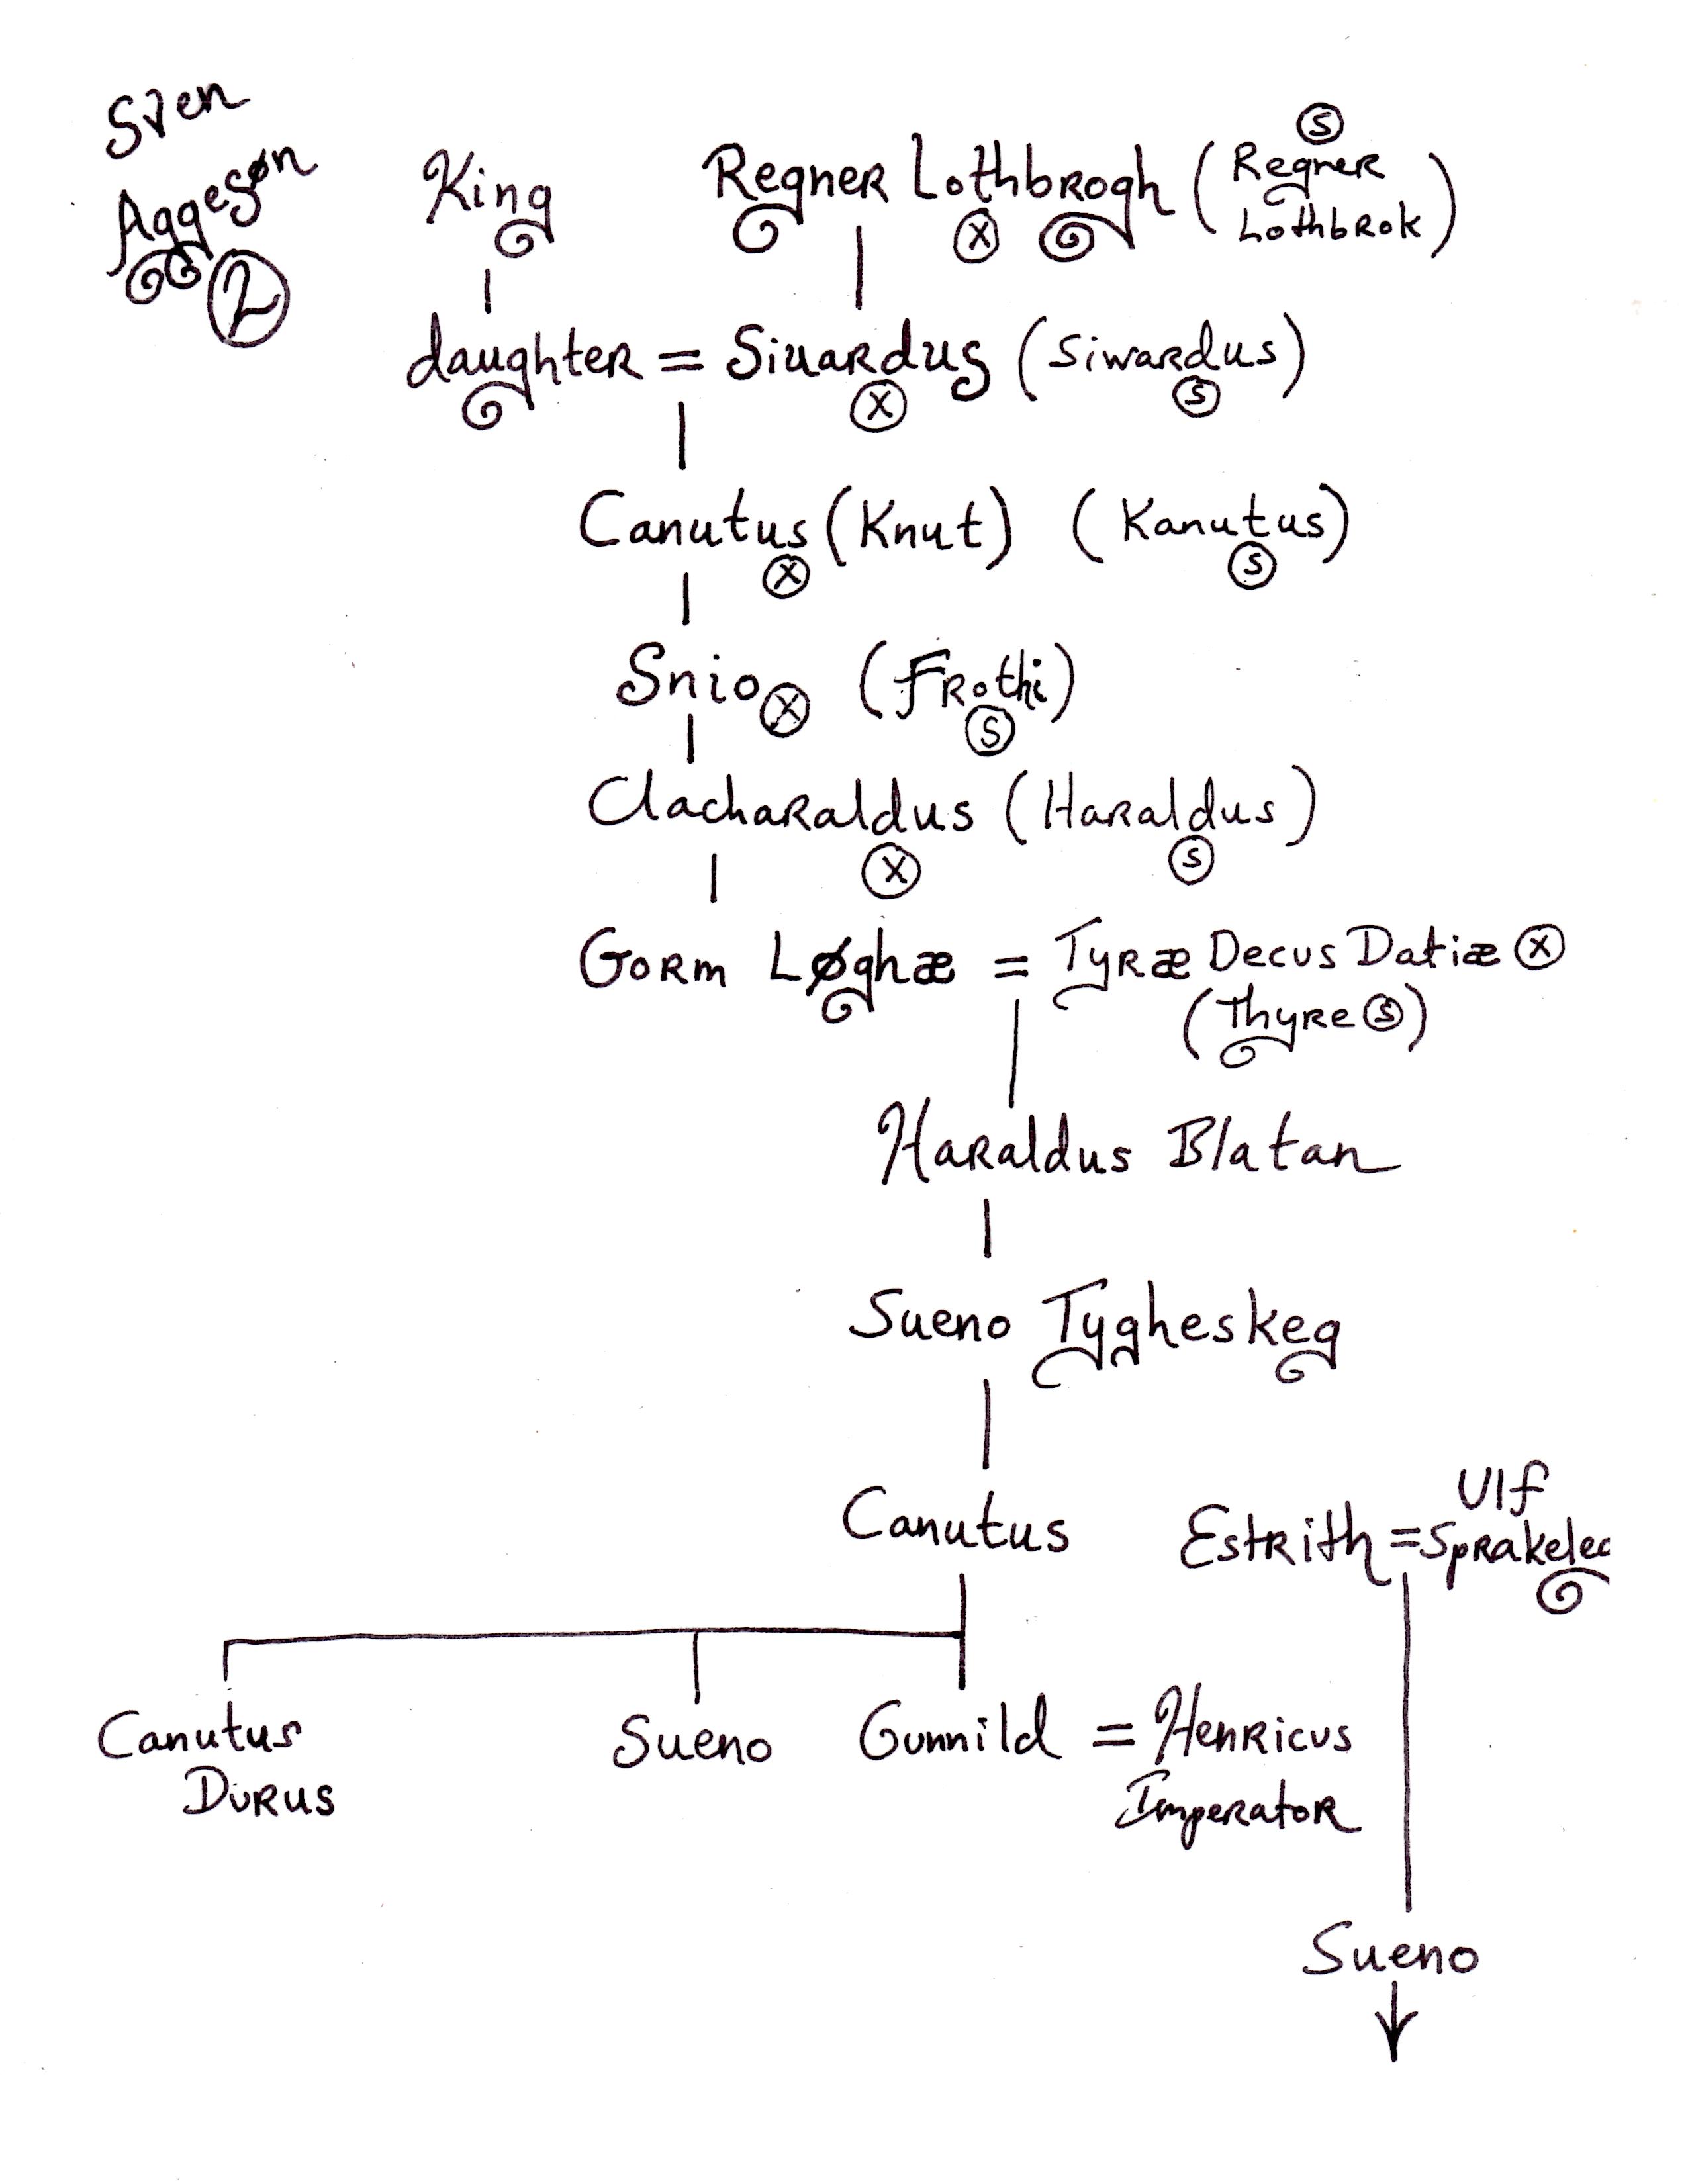 Sven
Aggesøn
2
King Regner Lothbrogh (Regner
Lothbrok)
X S
daughter = Siuardus (Siwardus)
X S
Canutus (Knut) (Kanutus)
X S
Snio X (Frothi)
S
Clacharaldus (Haraldus)
X S
Gorm Løghæ = Tyræ Decus Datiæ X
(Thyre S)
Haraldus Blatan
Sueno Tygheskeg
Canutus Estrith = Ulf
Sprakelec
Canutus
Durus
Sueno Gunnild = Henricus
Imperator
Sueno